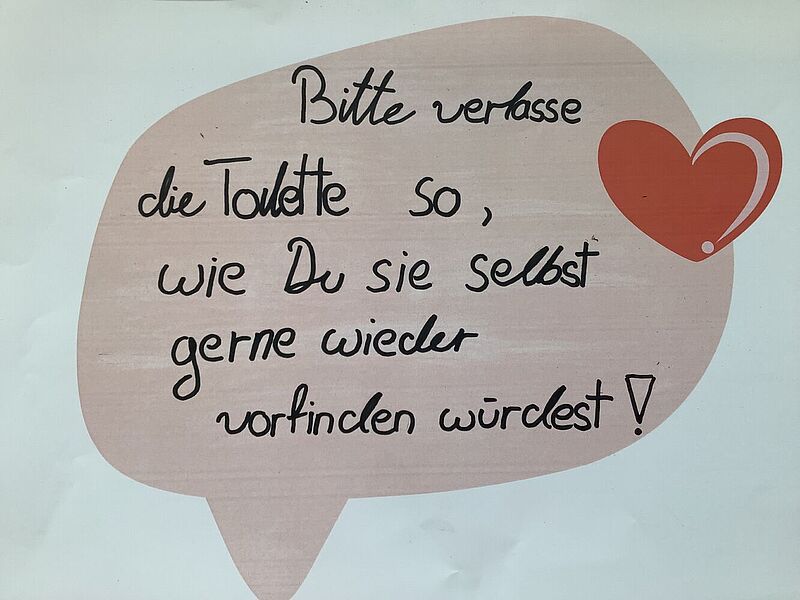 Bitte verlasse
die Toilette so,
wie Du sie selbst
gerne wieder
vorfinden würdest!